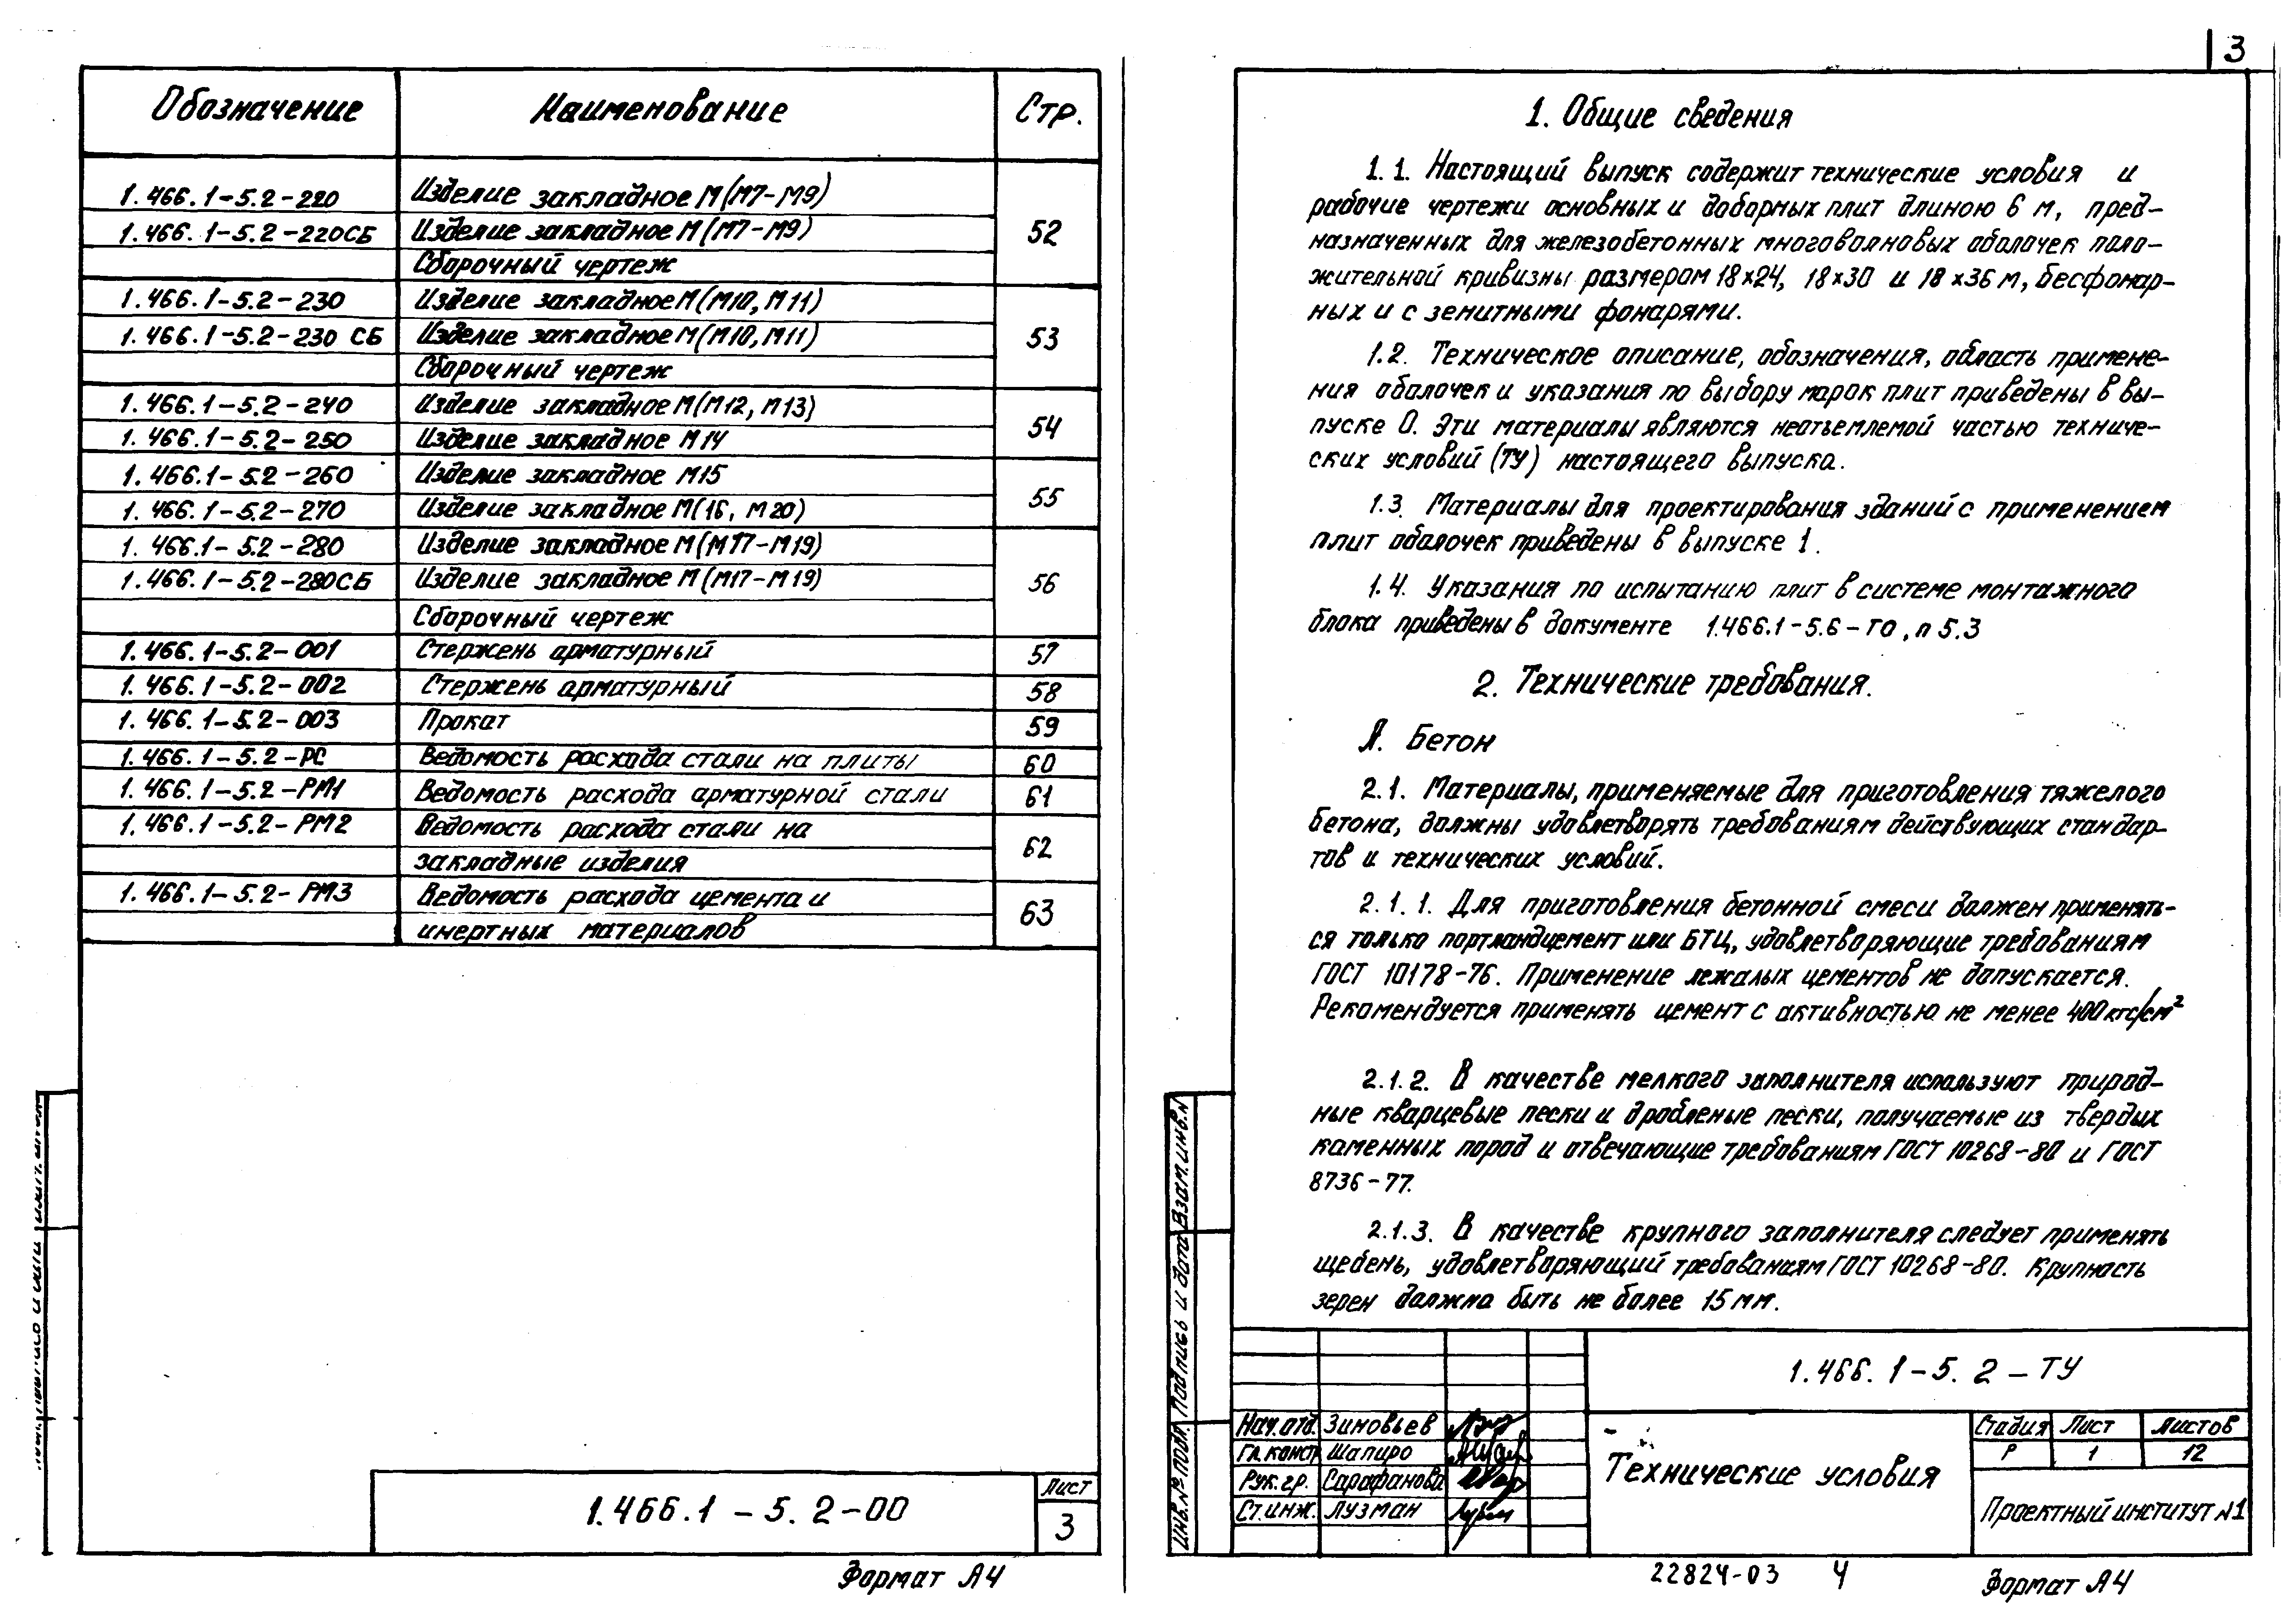 Обозначение Наименование Стр.
1.466.1-5.2-220 Изделие закладное М(М7-М9)
1.466.1-5.2-220СБ Изделие закладное М(М7-М9) 52
Сборочный чертеж
1.466.1-5.2-230 Изделие закладное М(М10, М11)
1.466.1-5.2-230 СБ Изделие закладное М(М10, М11) 53
Сборочный чертеж
1.466.1-5.2-240 Изделие закладное М(М12, М13) 54
1.466.1-5.2-250 Изделие закладное М14
1.466.1-5.2-260 Изделие закладное М15 55
1.466.1-5.2-270 Изделие закладное М(16, М20)
1.466.1-5.2-280 Изделие закладное М(М17-М19)
1.466.1-5.2-280СБ Изделие закладное М(М17-М19) 56
Сборочный чертеж
1.466.1-5.2-001 Стержень арматурный 57
1.466.1-5.2-002 Стержень арматурный 58
1.466.1-5.2-003 Прокат 59
1.466.1-5.2-РС Ведомость расхода стали на плиты 60
1.466.1-5.2-РМ1 Ведомость расхода арматурной стали 61
1.466.1-5.2-РМ2 Ведомость расхода стали на 62
закладные изделия
1.466.1-5.2-РМ3 Ведомость расхода цемента и 63
инертных материалов
1.466.1-5.2-00
Лист
3
Формат А4
3
1. Общие сведения
1.1. Настоящий выпуск содержит технические условия и
рабочие чертежи основных и доборных плит длиною 6 м, пред-
назначенных для железобетонных многоволновых оболочек поло-
жительной кривизны размером 18×24, 18×30 и 18×36 м, бесфонар-
ных и с зенитными фонарями.
1.2. Техническое описание, обозначения, область примене-
ния оболочек и указания по выбору марок плит приведены в вы-
пуске 0. Эти материалы являются неотъемлемой частью техниче-
ских условий (ТУ) настоящего выпуска.
1.3. Материалы для проектирования зданий с применением
плит оболочек приведены в выпуске 1.
1.4. Указания по испытанию плит в системе монтажного
блока приведены в документе 1.466.1-5.6-ТО, п 5.3
2. Технические требования.
А. Бетон
2.1. Материалы, применяемые для приготовления тяжелого
бетона, должны удовлетворять требованиям действующих стандар-
тов и технических условий.
2.1.1. Для приготовления бетонной смеси должен применять-
ся только портландцемент или БТЦ, удовлетворяющие требованиям
ГОСТ 10178-76. Применение лежалых цементов не допускается.
Рекомендуется применять цемент с активностью не менее 400кгс/см²
2.1.2. В качестве мелкого заполнителя используют природ-
ные кварцевые пески и дробленые пески, получаемые из твердых
каменных пород и отвечающие требованиям ГОСТ 10268-80 и ГОСТ
8736-77.
2.1.3. В качестве крупного заполнителя следует применять
щебень, удовлетворяющий требованиям ГОСТ 10268-80. Крупность
зерен должна быть не более 15 мм.
Взам.инв.№
Подпись и дата
Инв.№ подл.
1.466.1-5.2-ТУ
Нач.отд. Зиновьев
Гл.констр Шапиро
Рук.гр. Сарафанова
Ст.инж. Лузман
Технические условия
Стадия Лист Листов
Р 1 12
Проектный институт №1
22824-03 4
Формат А4